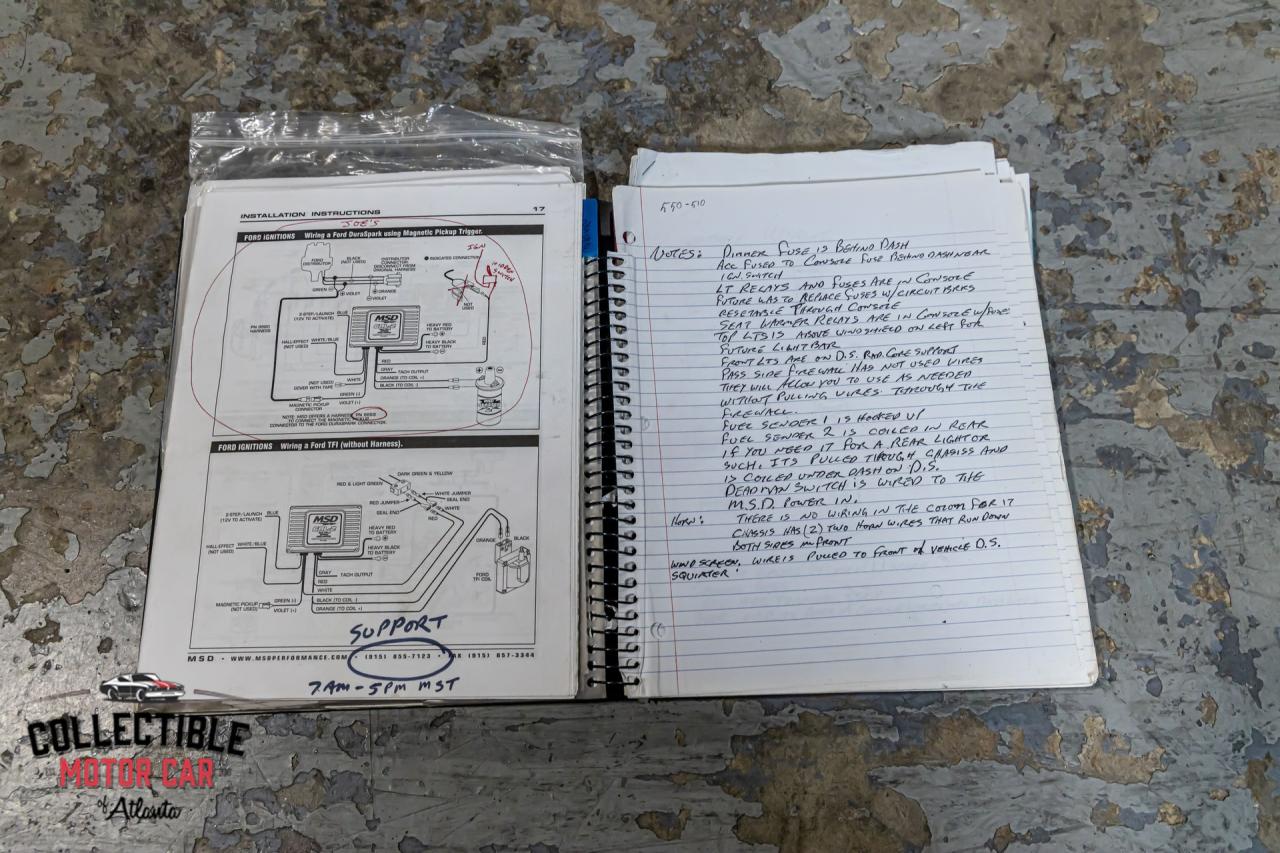 INSTALLATION INSTRUCTIONS 17
JOE'S
FORD IGNITIONS Wiring a Ford DuraSpark using Magnetic Pickup Trigger.
FORD
DISTRIBUTOR
BLACK
(NOT USED)
DISTRIBUTOR
CONNECTOR
DISCONNECT FROM
ORIGINAL HARNESS
INDICATES CONNECTION
IGN
HIDDEN
SWITCH
GREEN
VIOLET
ORANGE
VIOLET
NOT
USED
PN 8860
HARNESS
2-STEP/LAUNCH
(12V TO ACTIVATE)
BLUE
MSD
HEAVY RED
TO BATTERY
HEAVY BLACK
TO BATTERY
HALL-EFFECT
(NOT USED)
WHITE/BLUE
RED
RED
GRAY
TACH OUTPUT
ORANGE (TO COIL +)
BLACK (TO COIL -)
(NOT USED)
COVER WITH TAPE
WHITE
GREEN (-)
VIOLET (+)
MAGNETIC PICKUP
CONNECTOR
NOTE: MSD OFFERS A HARNESS, PN 8860
TO CONNECT THE MAGNETIC PICKUP
CONNECTOR TO THE FORD DURASPARK CONNECTOR.
FORD IGNITIONS Wiring a Ford TFI (without Harness).
DARK GREEN & YELLOW
RED & LIGHT GREEN
WHITE JUMPER
SEAL END
RED JUMPER
SEAL END
WHITE
RED
2-STEP/LAUNCH
(12V TO ACTIVATE)
BLUE
MSD
HEAVY RED
TO BATTERY
HEAVY BLACK
TO BATTERY
HALL-EFFECT
(NOT USED)
WHITE/BLUE
ORANGE
BLACK
FORD
TFI COIL
GRAY
TACH OUTPUT
RED
WHITE
MAGNETIC PICKUP
(NOT USED)
GREEN (-)
VIOLET (+)
BLACK (TO COIL -)
ORANGE (TO COIL +)
SUPPORT
MSD • WWW.MSDPERFORMANCE.COM • (915) 855-7123 • FAX (915) 857-3344
7AM - 5PM MST
550-510
NOTES: DIMMER FUSE IS BEHIND DASH
ACC FUSED TO CONSOLE FUSE BEHIND DASH NEAR
IGN. SWITCH
LT RELAYS AND FUSES ARE IN CONSOLE
FUTURE WAS TO REPLACE FUSES W/CIRCUIT BRKS
RESETABLE THROUGH CONSOLE
SEAT WARMER RELAYS ARE IN CONSOLE W/FUSE
TOP LTS IS ABOVE WINDSHIELD ON LEFT FOR
FUTURE LIGHT BAR
FRONT LTS ARE ON D.S. RAD. CORE SUPPORT
PASS SIDE FIREWALL HAS NOT USED WIRES
THEY WILL ALLOW YOU TO USE AS NEEDED
WITHOUT PULLING WIRES THROUGH THE
FIREWALL.
FUEL SENDER 1 IS HOOKED UP
FUEL SENDER 2 IS COILED IN REAR
IF YOU NEED IT FOR A REAR LIGHT OR
SUCH. ITS PULLED THROUGH CHASSIS AND
IS COILED UNDER DASH ON D.S.
DEADMAN SWITCH IS WIRED TO THE
M.S.D. POWER IN.
HORN: THERE IS NO WIRING IN THE COLUM FOR IT
CHASSIS HAS (2) TWO HORN WIRES THAT RUN DOWN
BOTH SIDES IN FRONT
WIND SCREEN, WIRE IS PULLED TO FRONT of VEHICLE D.S.
SQUIRTER:
COLLECTIBLE
MOTOR CAR
of Atlanta